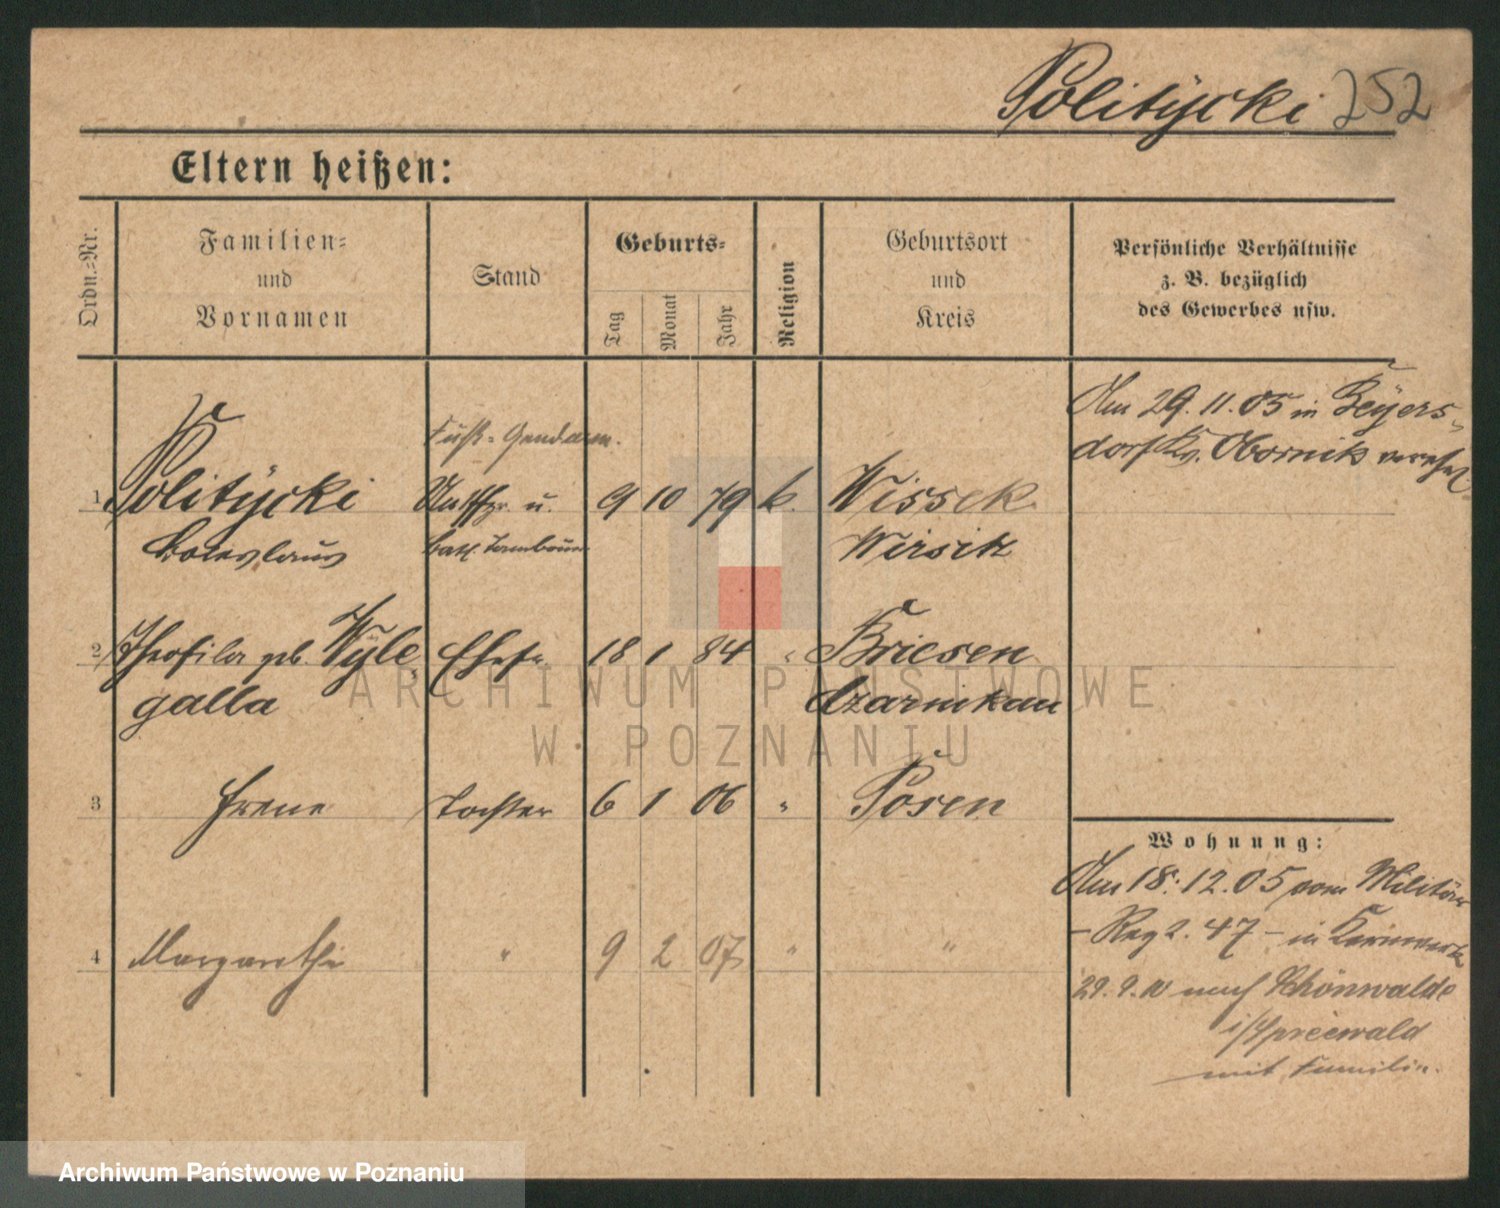 Politycki 252
Eltern heißen:
Ordn.=Nr.
Familien=
und
Vornamen
Stand
Geburts=
Tag
Monat
Jahr
Religion
Geburtsort
und
Kreis
Persönliche Verhältnisse
z. B. bezüglich
des Gewerbes usw.
Am 29.11.05 in Beyers-
dorf Kr. Obornik vereh.
Fuß-Gendarm.
1 Politycki u. 9 10 79 k. Wissek
Boleslaus Batl. Tambour Wirsitz
2 Theofila geb. Wyle Ehefr 18 1 84 " Briesen
galla Czarnikau
3 Irene Tochter 6 1 06 " Posen
Wohnung:
Am 18.12.05 vom Militär
- Reg 2. 47 - in Kernwerk
4 Margarethe " 9 2 07 " "
29.9.10 nach Schönwalde
i/Spreewald
mit Familie.
ARCHIWUM PAŃSTWOWE
W POZNANIU
Archiwum Państwowe w Poznaniu